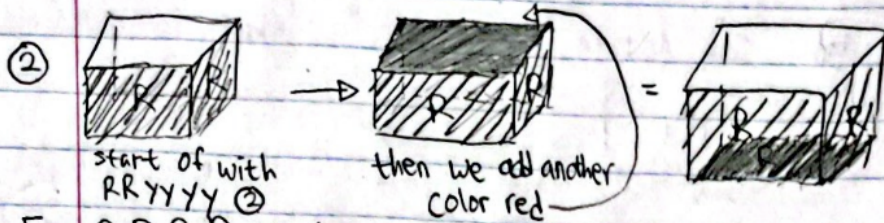 ②
R R
R R
=
R R
start of with
RRYYYY ②
then we add another
color red